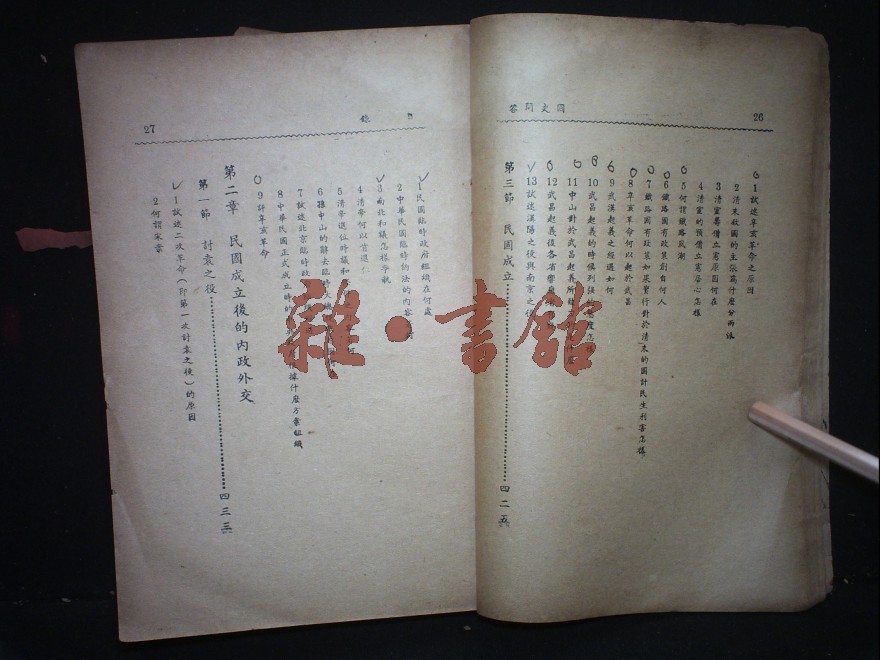 國史問答
26
1試述辛亥革命之原因
2清末救國的主張爲什麽分兩派
3清室籌備立憲原因何在
4清室的預備立憲居心怎樣
5何謂鐵路風潮
6鐵路國有政策創自何人
7鐵路國有政策如果實行對於清末的國計民生利害怎樣
8辛亥革命何以起於武昌
9武漢起義之經過如何
10武昌起義的時候列强
11中山對於武昌起義所
12武昌起義後各省響應
13試述漢陽之役與南京之役
第三節 民國成立
四二五
目錄
27
1民國臨時政府組織在何處
2中華民國臨時約法的內容
3南北和議怎樣爭執
4清帝何以肯遜位
5清帝退位時議和
6孫中山的辭去臨時大總
7試述北京臨時政
8中華民國正式成立時的
據什麽方案組織
9評辛亥革命
第二章 民國成立後的內政外交
第一節 討袁之役
四三三
1試述二次革命(即第一次討袁之役)的原因
2何謂宋案
雜·書館